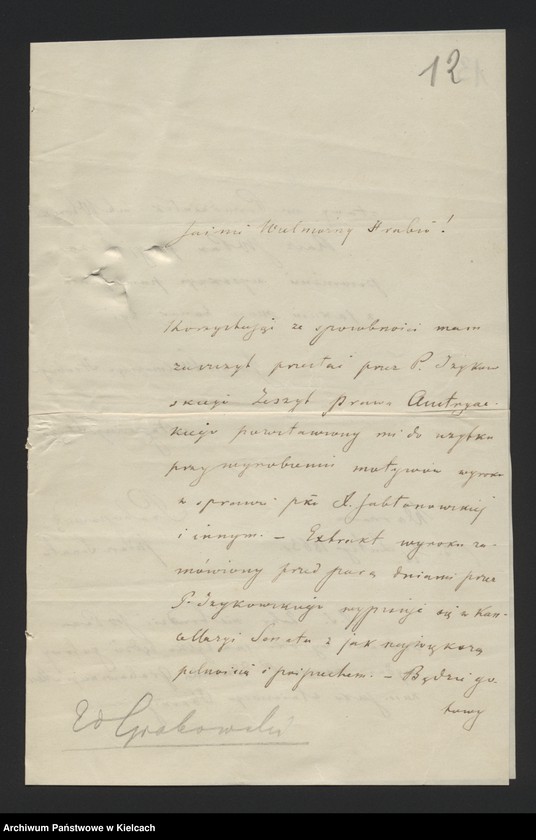 12
Jaśnie Wielmożny Hrabio!
Korzystając ze sposobności mam
zaszczyt przesłać przez P. Izykow
skiego Zeszyt prawa Austryac-
kiego pozostawiony mi do użytku
przy wyrobieniu motywów wyroku
w sprawie pko X. Jabłonowskiej
i innym. — Extrakt wyroku za-
mówiony przed parą dniami przez
P. Izykowskiego wypisuje się w Kan-
cellaryi Senatu z jak największą
pilnością i pośpiechem. — Będzie go
towy
Archiwum Państwowe w Kielcach